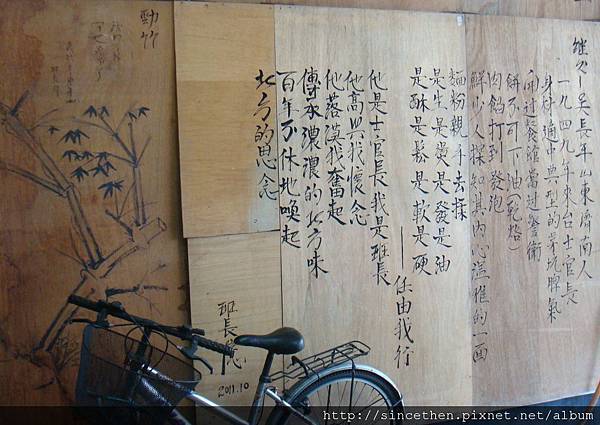 一九四九年來台士官長
身材適中典型的茅坑脾氣
開過餐館當過警衛
餅不可下油(乾烙)
肉餡打到發泡
鮮少人探知其內心溫惟的一面
麵粉親手去揉
是生是燙是發是油
是酥是鬆是軟是硬
——任由我行
他是士官長我是班長
他高興我懷念
他落漠我奮起
傳承濃濃的北方味
百年不休地喚起
北方的思念
班長憶
2011.10
勁竹
http://sincethen.pixnet.net/album